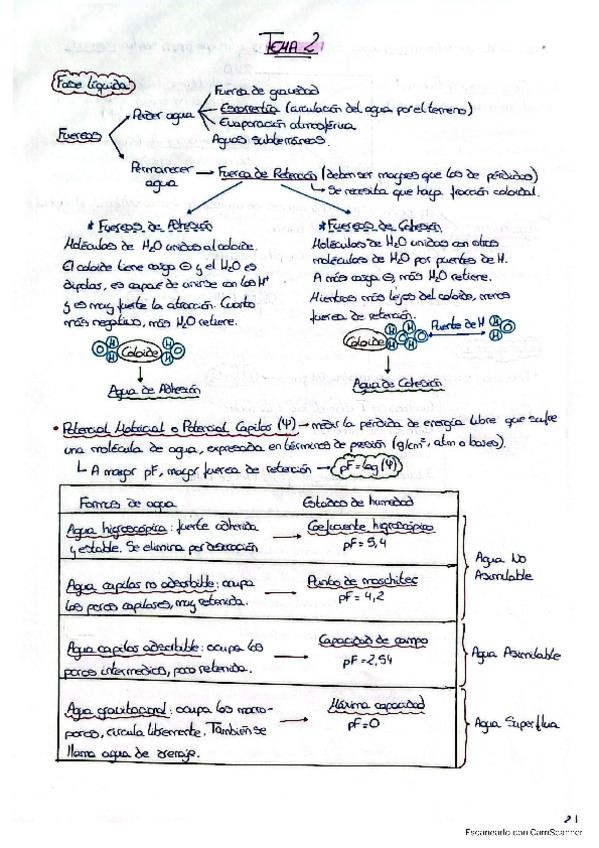 TEMA 2
Fase Líquida
Fuerzas
Perder agua
Fuerza de gravedad
Escorrentía (circulación del agua por el terreno)
Evaporación atmosférica
Aguas subterráneas.
Permanecer agua
Fuerza de Retención (deben ser mayores que las de pérdidas)
Se necesita que haya fracción coloidal.
* Fuerzas de Adhesión
Moléculas de H2O unidas al coloide.
El coloide tiene carga ⊖ y el H2O es
dipolar, es capaz de unirse con los H+
y es muy fuerte la atracción. Cuanto
más negativo, más H2O retiene.
O H H Coloide H H O
Agua de Adhesión
* Fuerzas de Cohesión
Moléculas de H2O unidas con otras
moléculas de H2O por puentes de H.
A más carga ⊖, más H2O retiene.
Mientras más lejos del coloide, menos
fuerza de retención.
Coloide H H O H H O Puente de H H O
Agua de Cohesión
• Potencial Matricial o Potencial Capilar (Ψ) → medir la pérdida de energía libre que sufre
una molécula de agua, expresada en términos de presión (g/cm², atm o bares).
A mayor pF, mayor fuerza de retención → pF = log (Ψ)
Formas de agua
Estados de humedad
Agua higroscópica: fuerte adherida
y estable. Se elimina por desecación
→ Coeficiente higroscópico
pF = 5,4
Agua capilar no absorbible: ocupa
los poros capilares, muy retenida.
→ Punto de marchitez
pF = 4,2
Agua No
Asimilable
Agua capilar absorbible: ocupa los
poros intermedios, poco retenida.
→ Capacidad de campo
pF = 2,54
Agua Asimilable
Agua gravitacional: ocupa los macro-
poros, circula libremente. También se
llama agua de drenaje.
→ Máxima capacidad
pF = 0
Agua Superflua
21
Escaneado con CamScanner